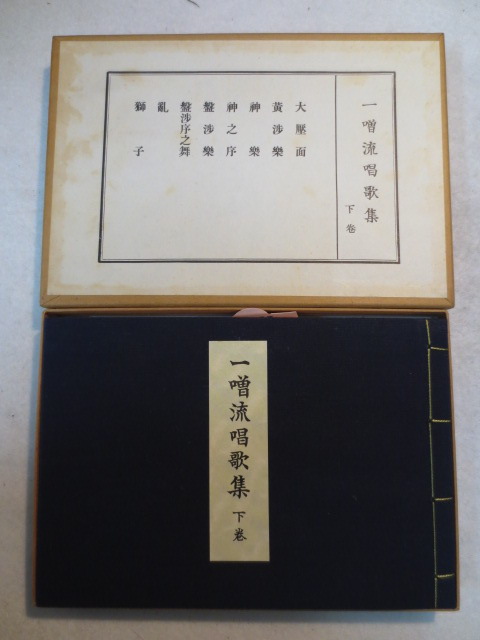 一噌流唱歌集
下卷
大壓面
黃涉樂
神樂
神之序
盤涉樂
盤涉序之舞
亂
獅子
一噌流唱歌集
下卷